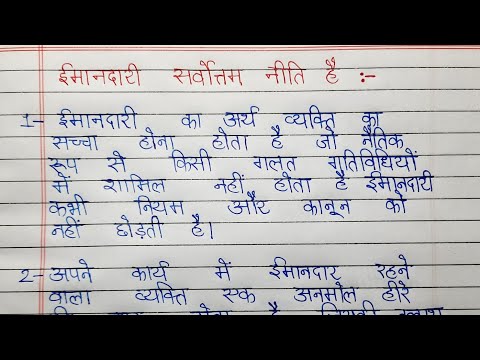 ईमानदारी सर्वोत्तम नीति है :-
1- ईमानदारी का अर्थ व्यक्ति का
सच्चा होना होता है जो नैतिक
रूप से किसी गलत गतिविधियों
में शामिल नहीं होता है ईमानदारी
कभी नियम और कानून को
नहीं छोड़ती है।
2- अपने कार्य में ईमानदार रहने
वाला व्यक्ति एक अनमोल हीरे